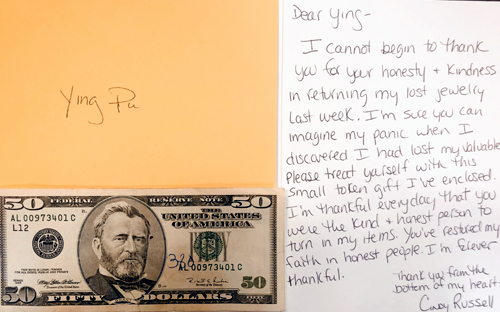 Ying Pu
50
FEDERAL RESERVE NOTE
50
AL 00973401 C
L12
THE
UNITED STATES
OF AMERICA
AL 00973401 C
50
FIFTY DOLLARS
50
Dear Ying-
I cannot begin to thank
you for your honesty + kindness
in returning my lost jewelry
last week. I'm sure you can
imagine my panic when I
discovered I had lost my valuable
please treat yourself with this
small token gift I've enclosed.
I'm thankful everyday that you
were the kind + honest person to
turn in my items. You've restored my
faith in honest people. I'm forever
thankful.
Thank you from the
bottom of my heart
Russell